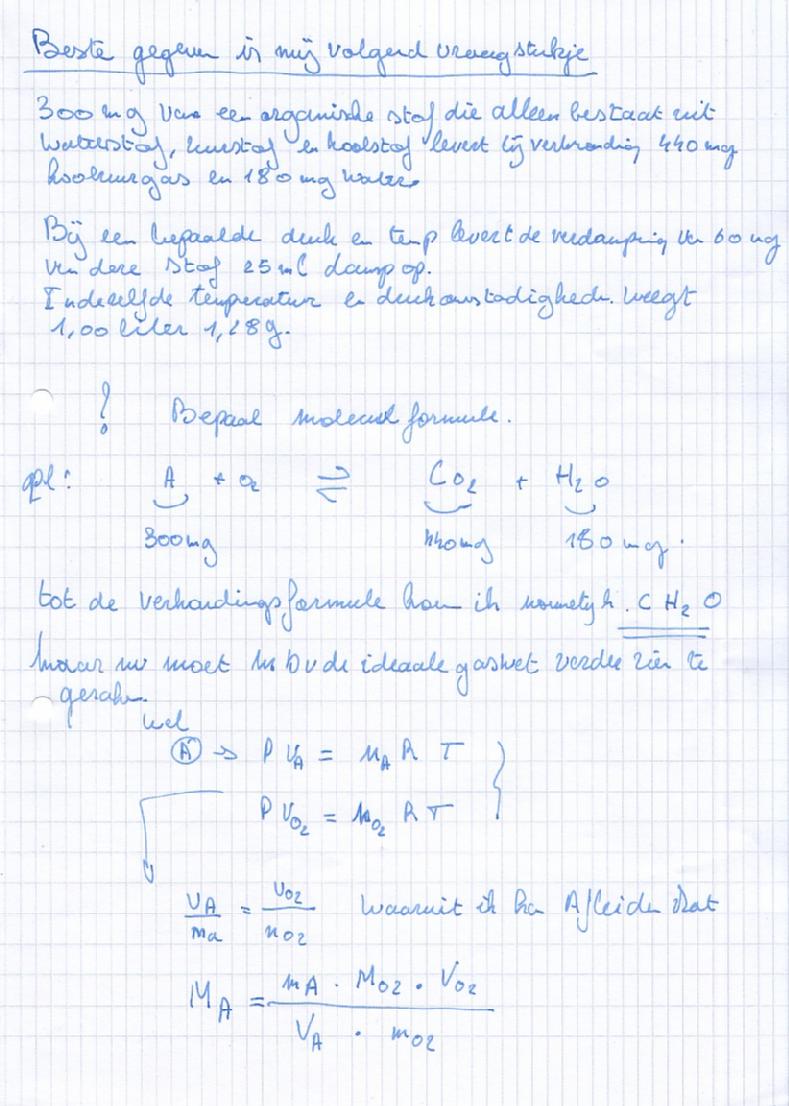 Beste gegeven is mij volgend vraagstukje
300 mg van een organische stof die alleen bestaat uit
waterstof, zuurstof en koolstof levert bij verbranding 440 mg
koolzuurgas en 180 mg water.
Bij een bepaalde druk en temp levert de verdamping van 60 mg
van deze stof 25 ml damp op.
In dezelfde temperatuur en drukomstadigheden weegt
1,00 liter 1,28g.
? Bepaal molecuul formule.
opl: A + O2 ⇌ CO2 + H2O
300mg 440mg 180 mg.
tot de verhoudingsformule kom ik namelijk. CH2O
maar nu moet ik bv de ideale gaswet verder zien te
geraken.
wel
(A) → P VA = nA R T
P VO2 = nO2 R T
VA/na = VO2/nO2 waaruit ik kan Afleiden dat
MA = mA . MO2 . VO2 / VA . mO2